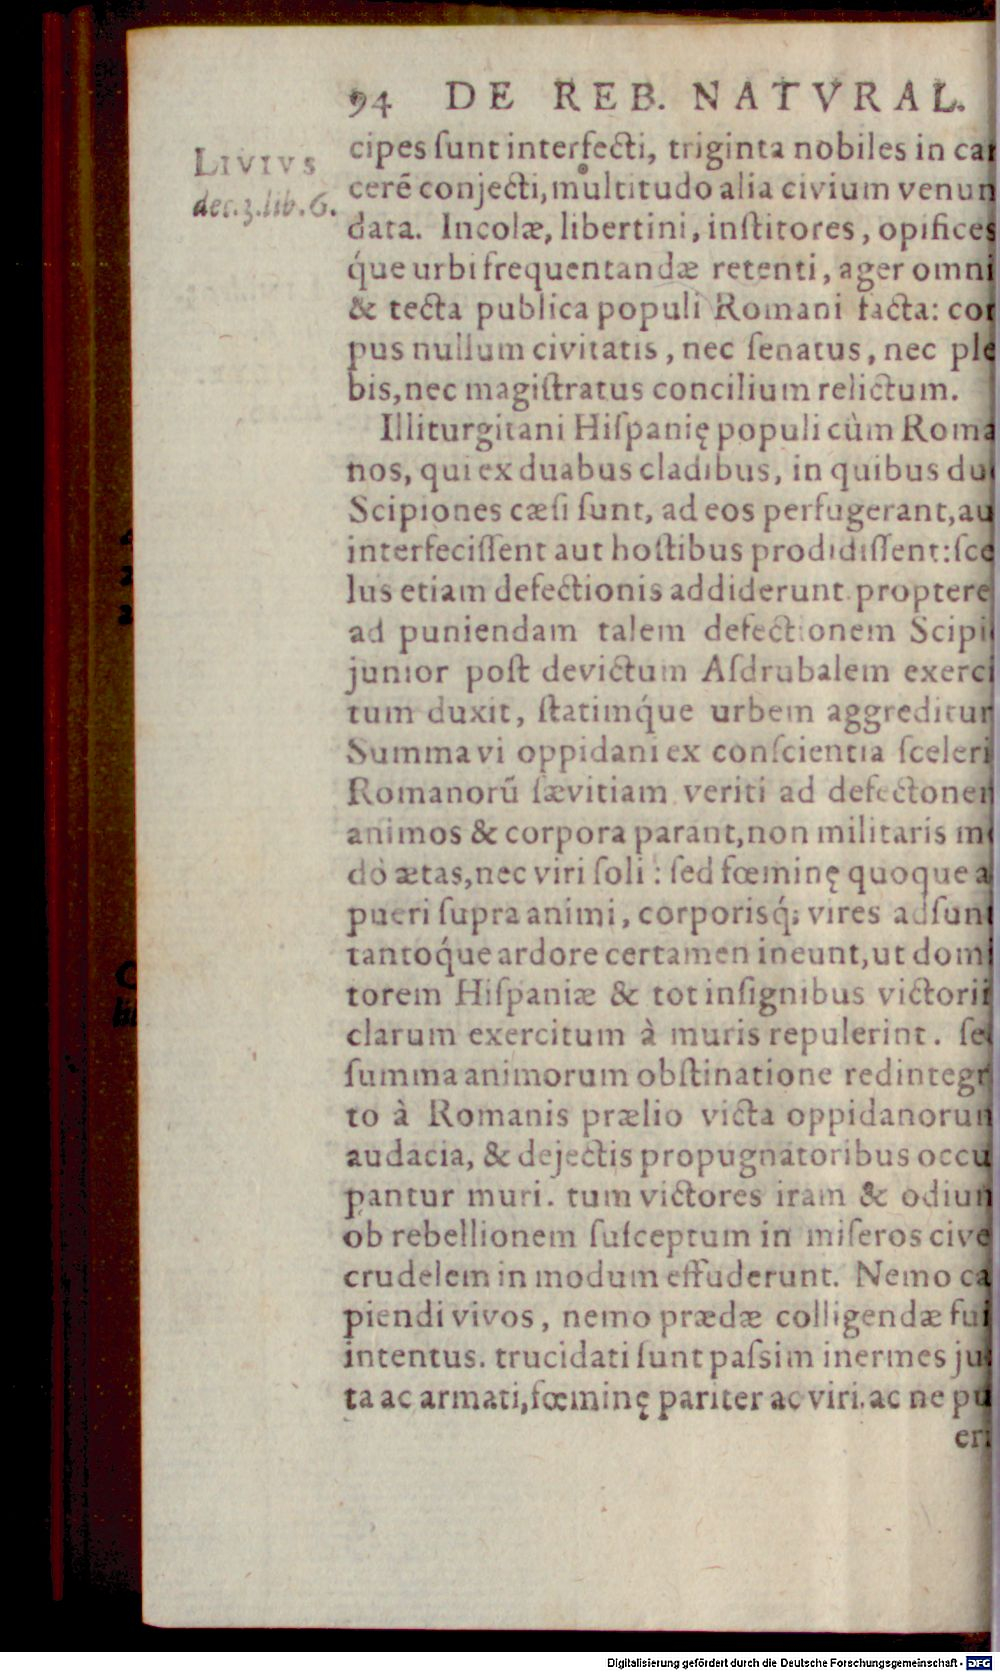 94 DE REB. NATVRAL.
LIVIVS
dec.3.lib.6.
cipes ſunt interfecti, triginta nobiles in car
cerē conjecti, multitudo alia civium venun
data. Incolæ, libertini, inſtitores, opifices
q́ue urbi frequentandæ retenti, ager omni
& tecta publica populi Romani facta: cor
pus nullum civitatis, nec ſenatus, nec ple
bis, nec magiſtratus concilium relictum.
Illiturgitani Hiſpanię populi cùm Roma
nos, qui ex duabus cladibus, in quibus du
Scipiones cæſi ſunt, ad eos perfugerant, au
interfeciſſent aut hoſtibus prodidiſſent: ſce
lus etiam defectionis addiderunt. proptere
ad puniendam talem defectionem Scipi
junior poſt devictum Aſdrubalem exerci
tum duxit, ſtatimq́ue urbem aggreditur
Summa vi oppidani ex conſcientia ſceleri
Romanorū ſævitiam veriti ad defectonem
animos & corpora parant, non militaris m
dò ætas, nec viri ſoli : ſed fœminę quoque a
pueri ſupra animi, corporisq́; vires adſunt
tantoq́ue ardore certamen ineunt, ut domi
torem Hiſpaniæ & tot inſignibus victorii
clarum exercitum à muris repulerint. ſe
ſumma animorum obſtinatione redintegr
to à Romanis prælio victa oppidanorun
audacia, & dejectis propugnatoribus occu
pantur muri. tum victores iram & odiun
ob rebellionem ſuſceptum in miſeros cive
crudelem in modum effuderunt. Nemo ca
piendi vivos, nemo prædæ colligendæ fui
intentus. trucidati ſunt paſsim inermes ju
ta ac armati, fœminę pariter ac viri. ac ne pu
eri
Digitalisierung gefördert durch die Deutsche Forschungsgemeinschaft - DFG